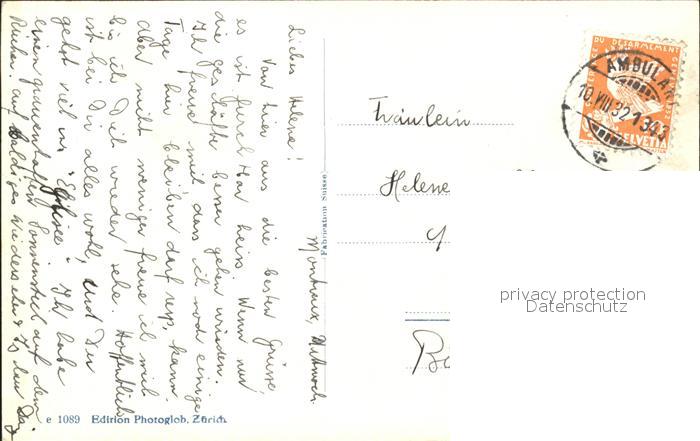 Montreux, Mittwoch.
Liebes Helene!
Von hier aus die besten Grüsse,
es ist furchtbar heiss. Wenn nur
die Geschäfte besser gehen würden.
Ich freue mich dass ich noch einige
Tage hier bleiben darf resp. kann
aber nicht weniger freue ich mich
bis ich Dich wieder sehe. Hoffentlich
ist bei Dir alles wohl, und Du
gehst viel ins Eglisee. Ich habe
einen grauenhaften Sonnenstich auf dem
Rücken auf baldiges Wiedersehen
Fräulein
Helene
Fabrication Suisse
e 1089 Edition Photoglob, Zürich
DU DESARMEMENT
HELVETIA
AMBULANT
10.VIII.32
1343
privacy protection
Datenschutz